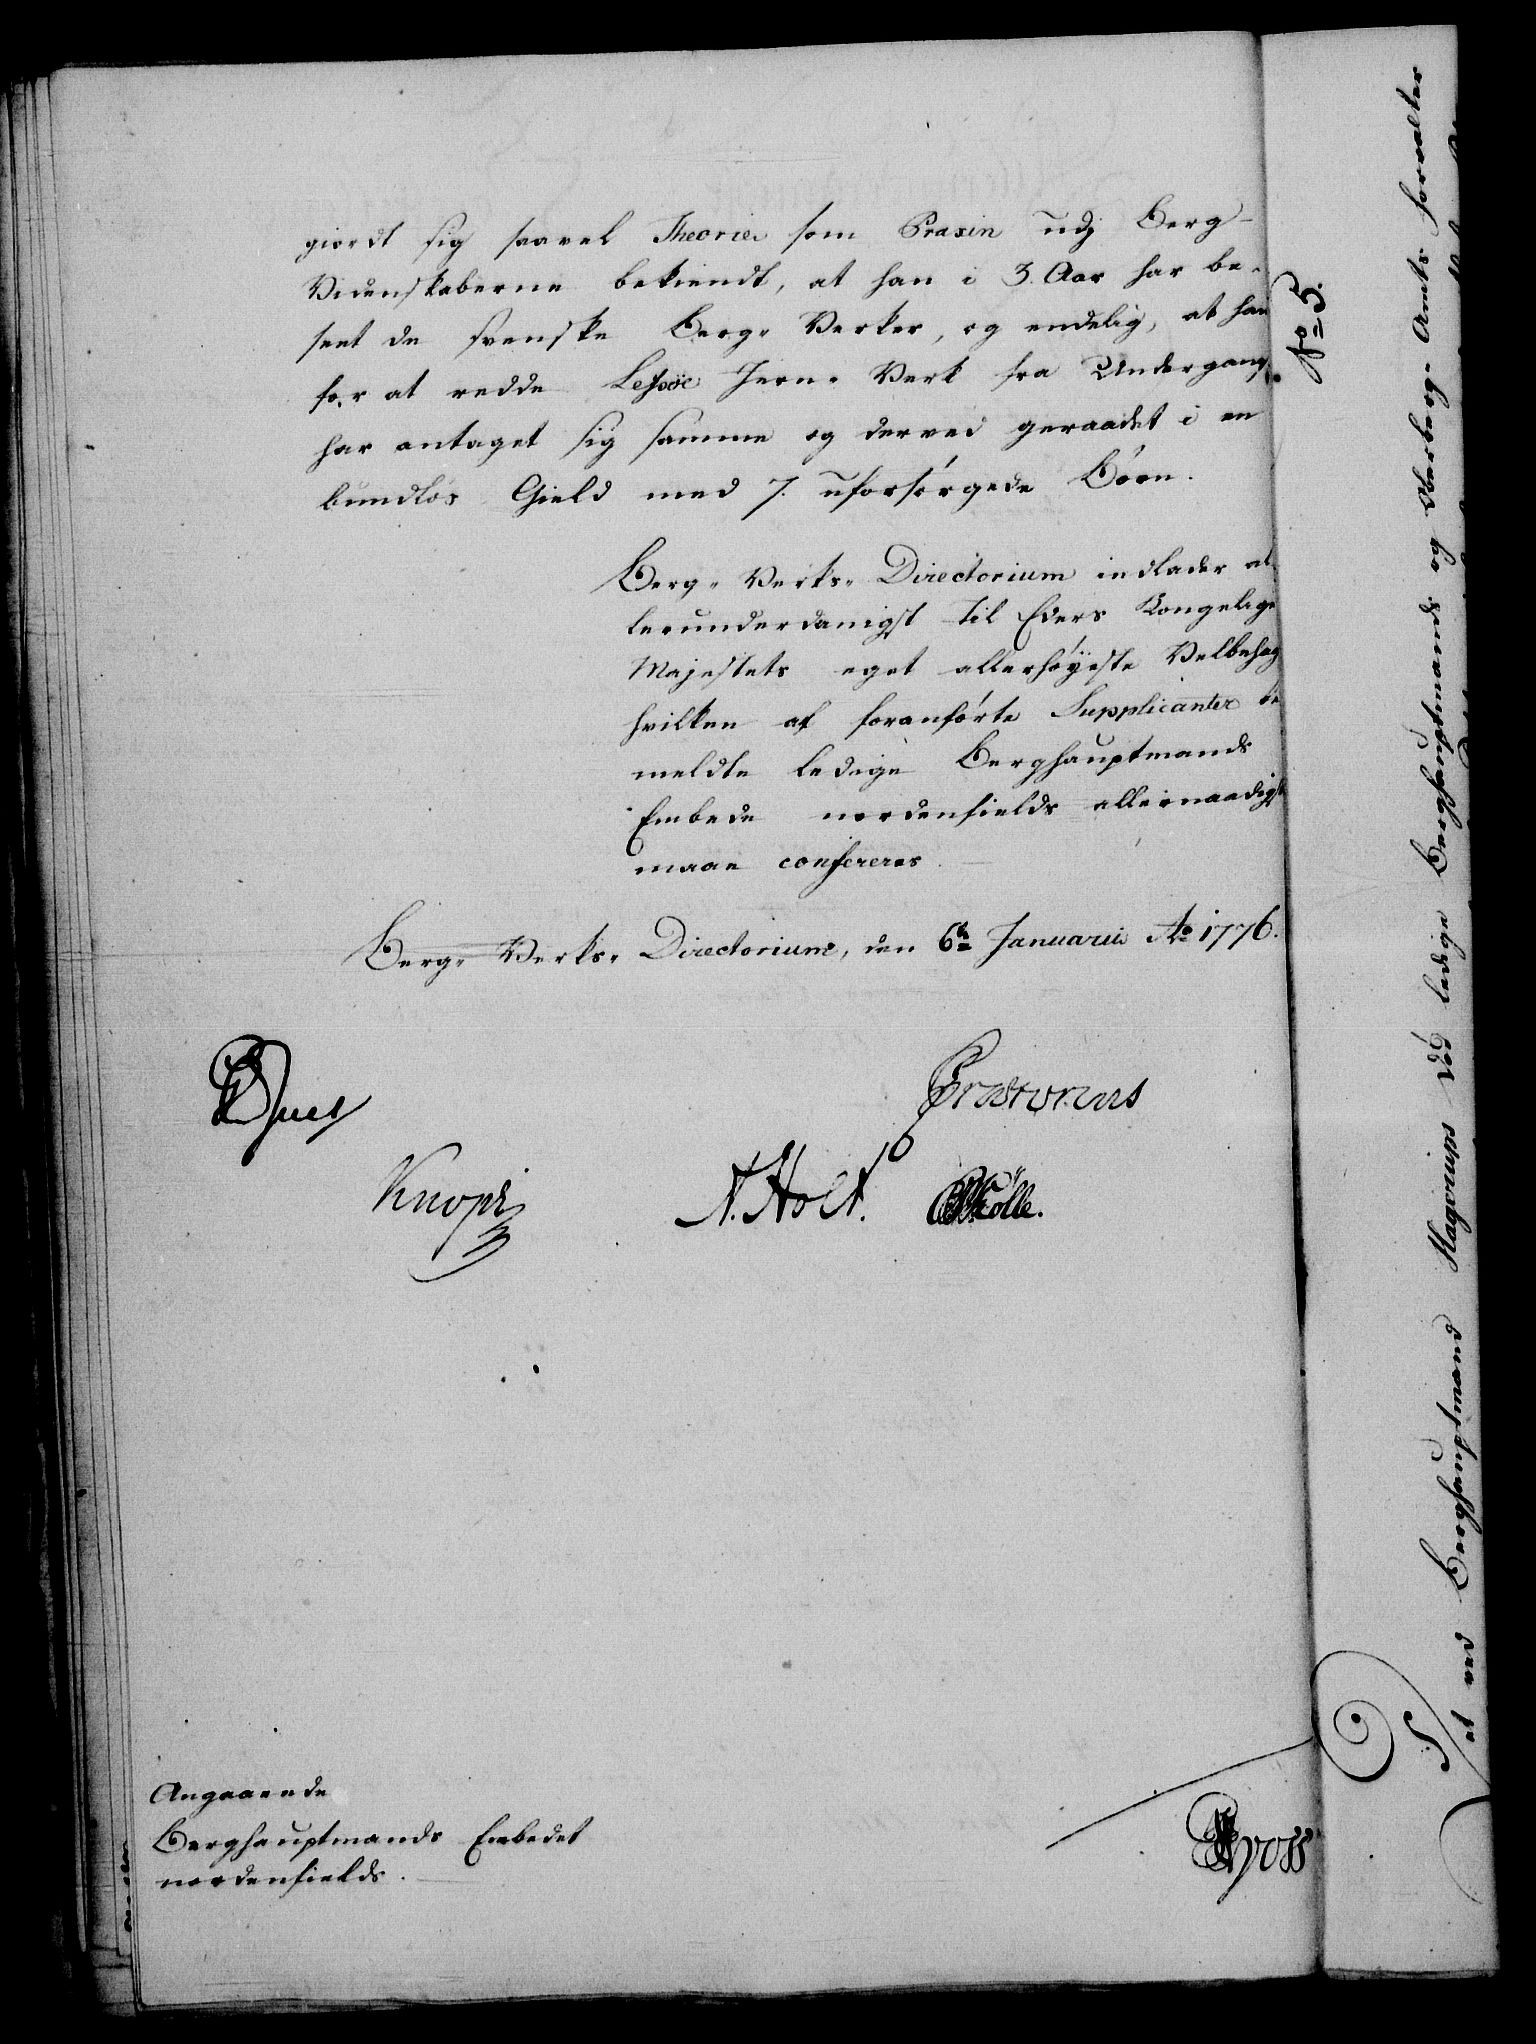 giordt sig saavel Theorien som Praxin udj Berg-
Videnskaberne bekiendt, at han i 3. Aar har be-
seet de svenske Berg- Verker, og endelig, at han
for at redde Lessøe Jern- Verk fra Undergang,
har antaget sig samme og derved geraadet i en
bundløs Gield med 7. uforsørgede Børn.
Berg- Verks- Directorium indlader al-
lerunderdanigst til Eders Kongelige
Majestets eget allerhøyeste Velbehag
hvilken af foranførte Supplicanter be
meldte ledige Berghauptmands
Embede nordenfields allernaadigst
maae confereres
Berg- Verks- Directorium, den 6te Januarii Ao 1776.
Juel
Prætorius
Knoph
N. Holt.
Kølle.
Angaaende
Berghauptmands Embedet
nordenfields.
No 5.
at ved Berghauptmand Hagerups Død ledige Berghauptmands og Oberberg- Amts forvalter